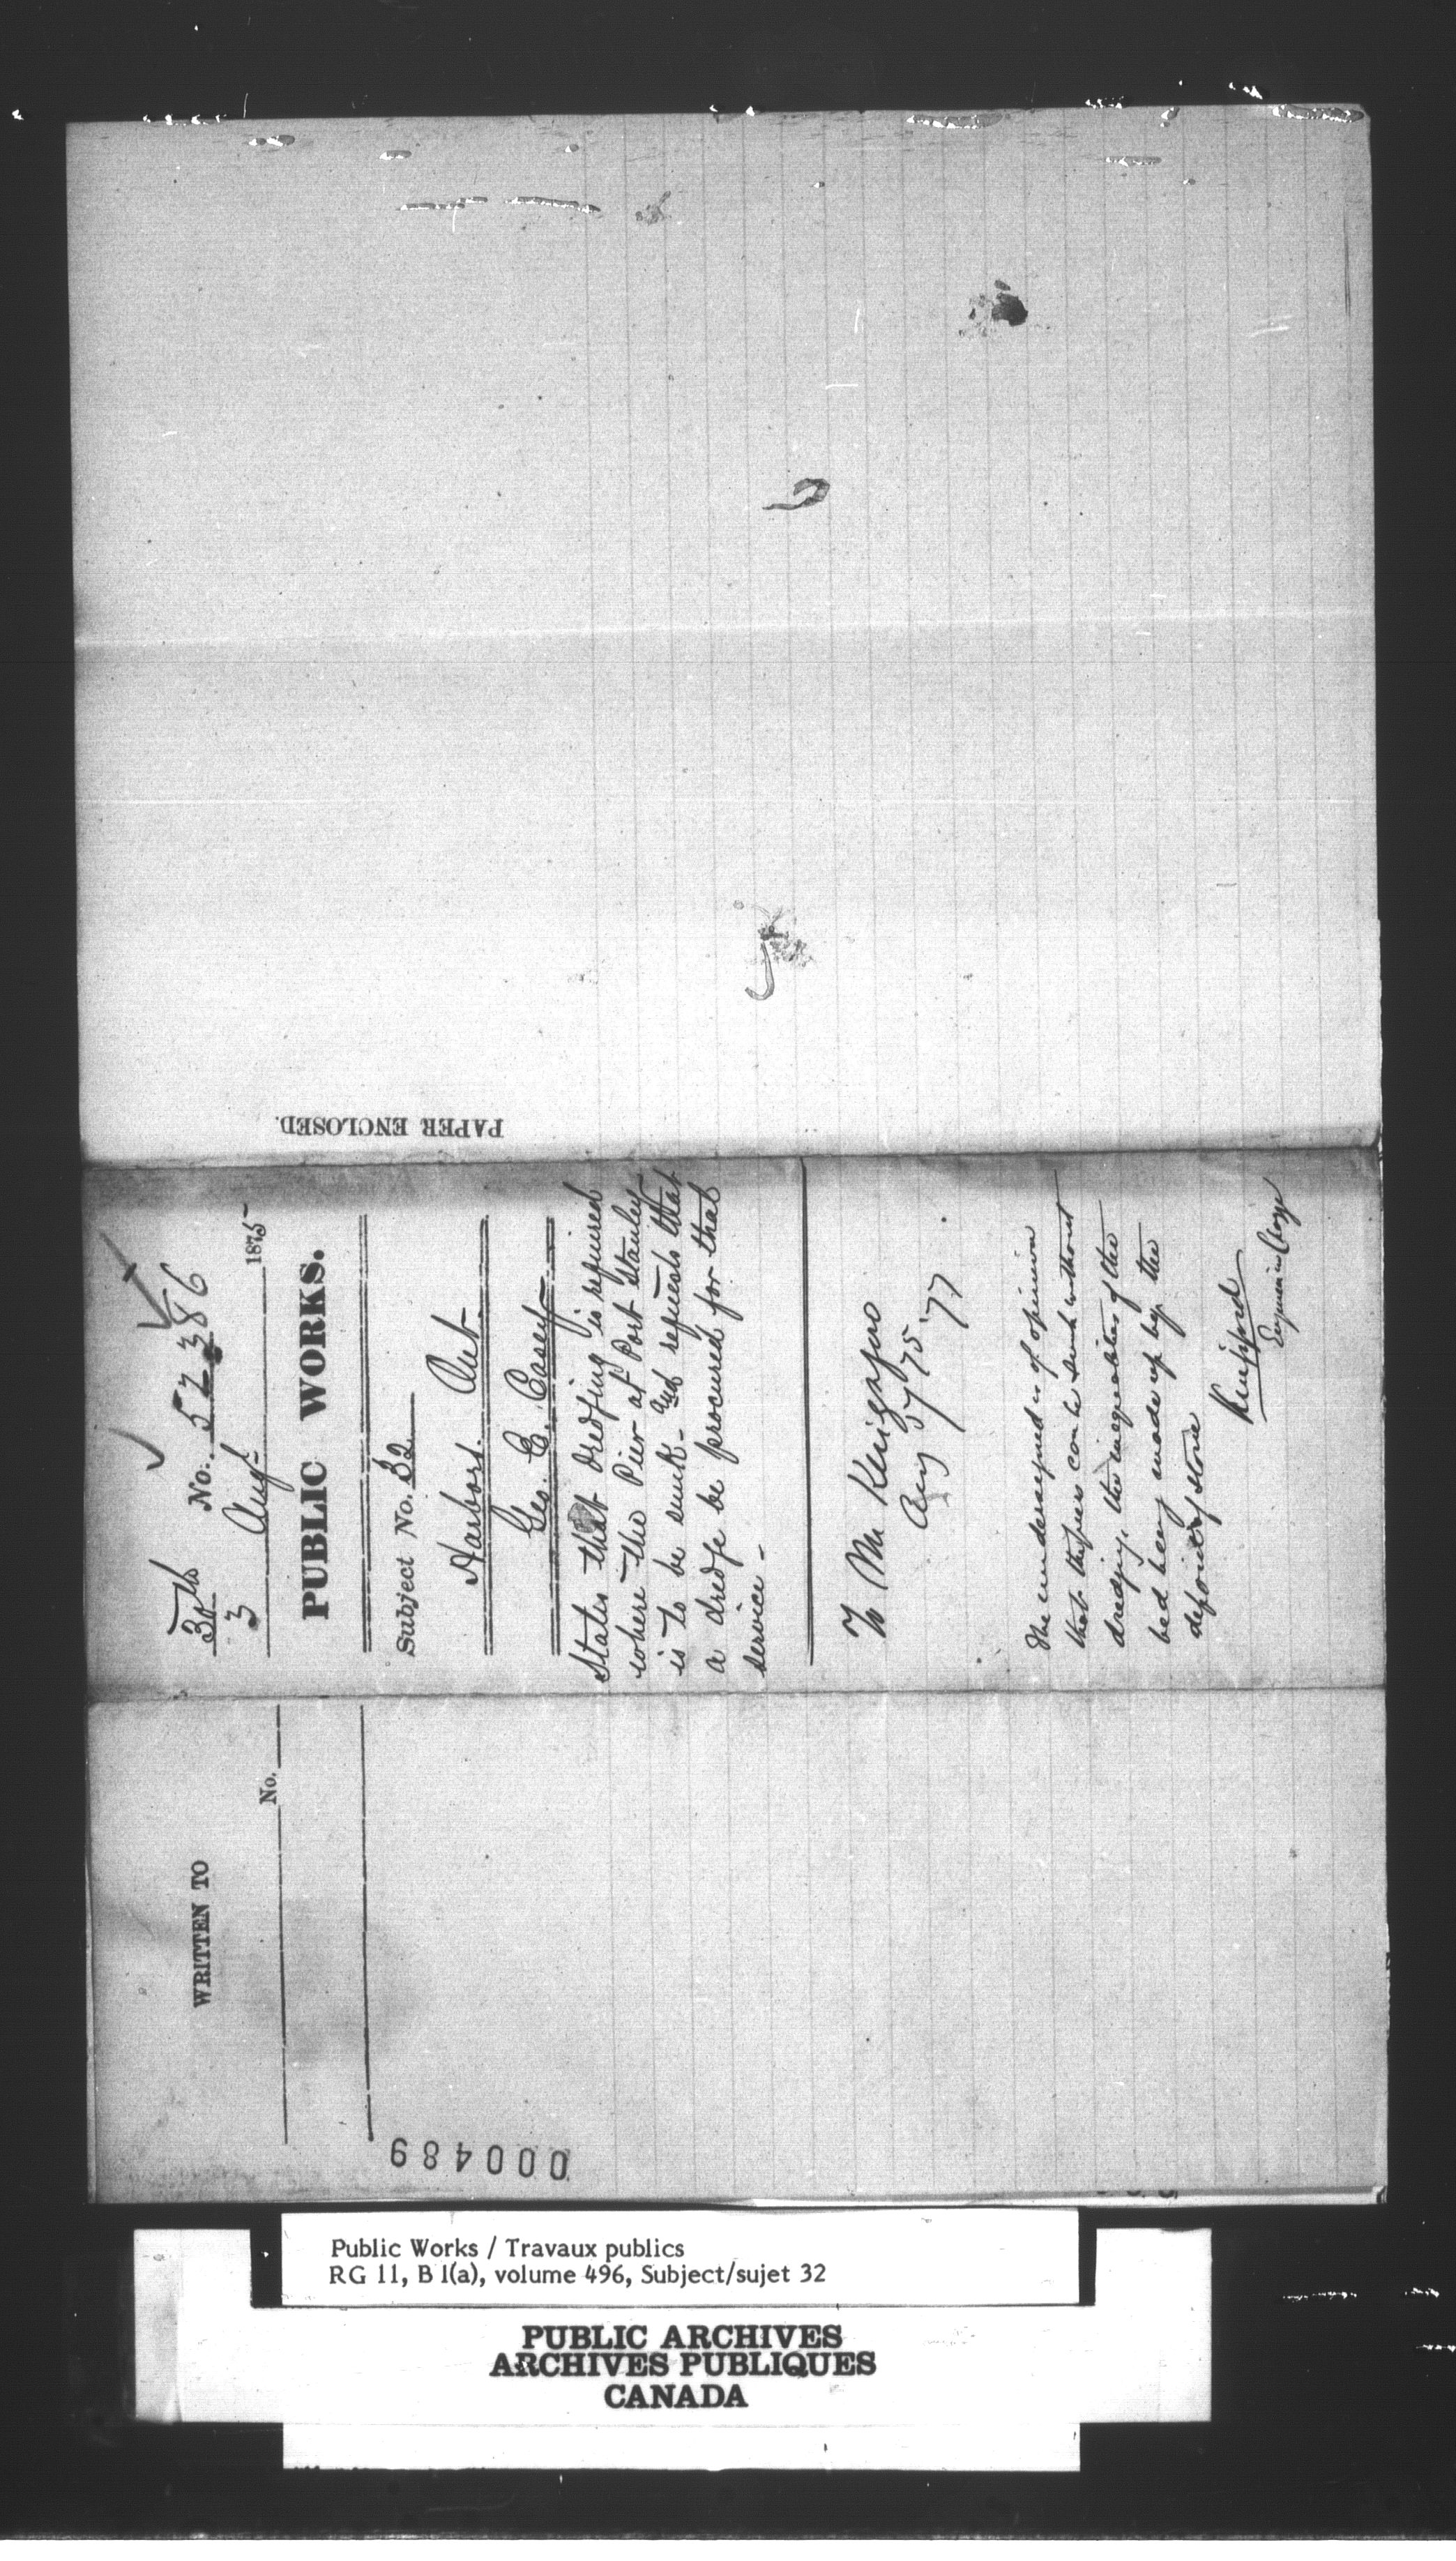 PAPER ENCLOSED.
30th
3
No. 52386
Augt 1875
PUBLIC WORKS.
Subject No. 32
Harbors. Ont.
Geo. E. Casey
States that dredging is required
where the Pier at Port Stanley
is to be sunk - and requests that
a dredge be procured for that
service -
To Mr
Aug 5/75 77
The undersigned is of opinion
that the piers can be sunk without
dredging, the inequalities of the
bed being made up by the
deposit of stone
Engineer in Charge
WRITTEN TO
No.
000489
Public Works / Travaux publics
RG 11, B 1(a), volume 496, Subject/sujet 32
PUBLIC ARCHIVES
ARCHIVES PUBLIQUES
CANADA